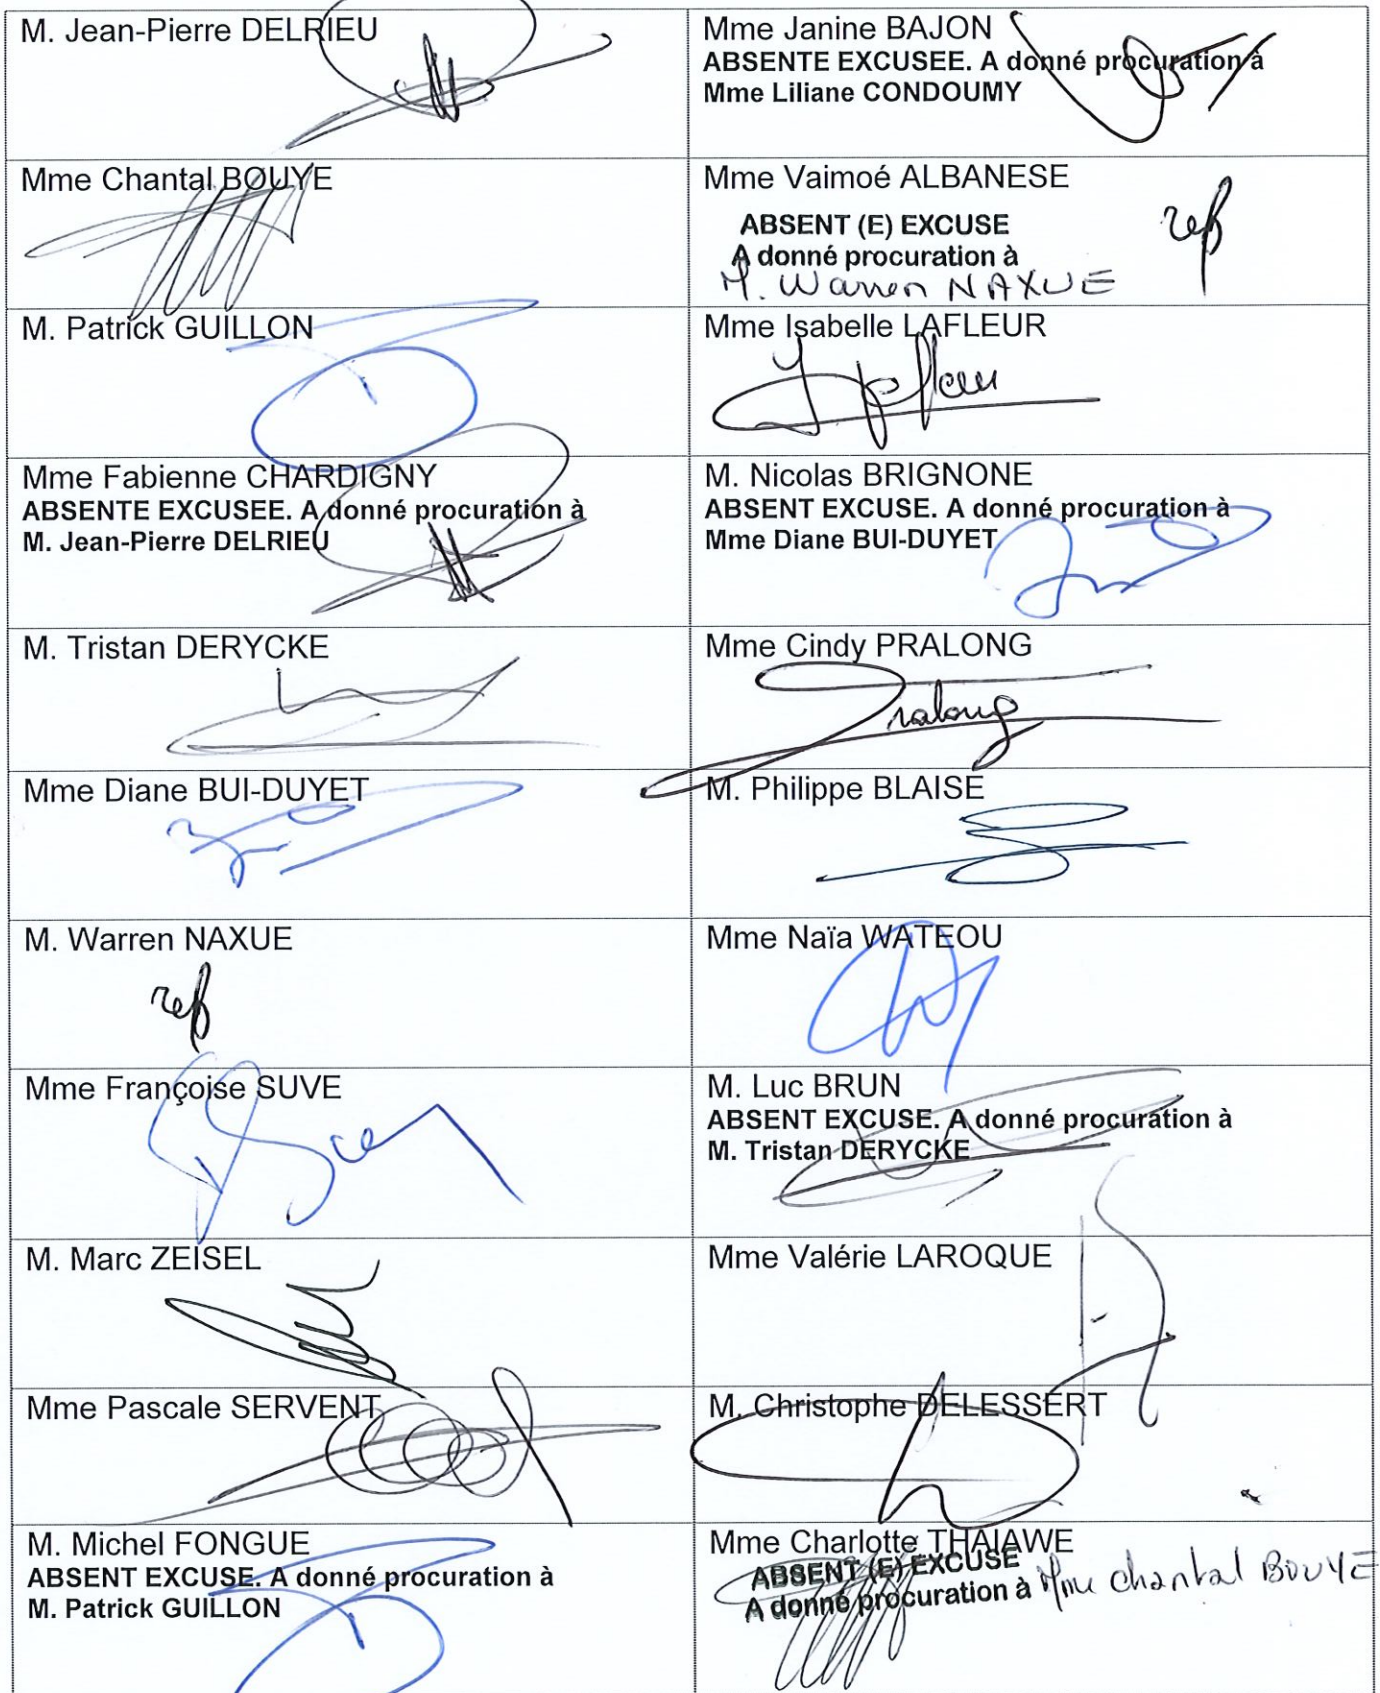 M. Jean-Pierre DELRIEU
Mme Janine BAJON
ABSENTE EXCUSEE. A donné procuration à
Mme Liliane CONDOUMY
Mme Chantal BOUYE
Mme Vaimoé ALBANESE
ABSENT (E) EXCUSE
A donné procuration à
M. Warren NAXUE
M. Patrick GUILLON
Mme Isabelle LAFLEUR
Mme Fabienne CHARDIGNY
ABSENTE EXCUSEE. A donné procuration à
M. Jean-Pierre DELRIEU
M. Nicolas BRIGNONE
ABSENT EXCUSE. A donné procuration à
Mme Diane BUI-DUYET
M. Tristan DERYCKE
Mme Cindy PRALONG
Pralong
Mme Diane BUI-DUYET
M. Philippe BLAISE
M. Warren NAXUE
Mme Naïa WATEOU
Mme Françoise SUVE
M. Luc BRUN
ABSENT EXCUSE. A donné procuration à
M. Tristan DERYCKE
M. Marc ZEISEL
Mme Valérie LAROQUE
Mme Pascale SERVENT
M. Christophe DELESSERT
M. Michel FONGUE
ABSENT EXCUSE. A donné procuration à
M. Patrick GUILLON
Mme Charlotte THAIAWE
ABSENT (E) EXCUSE
A donné procuration à Mme Chantal BOUYE